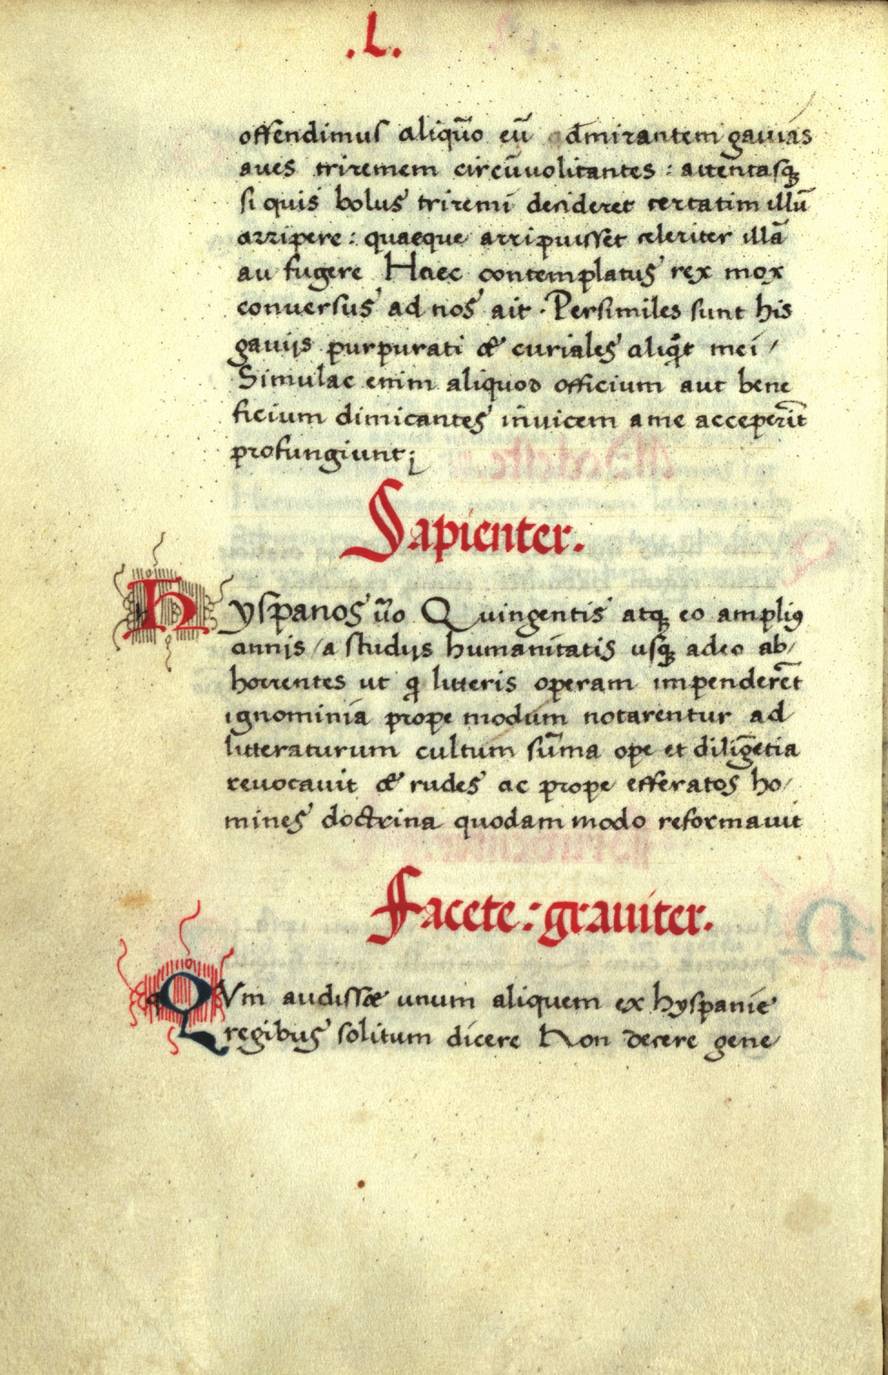 .L.
offendimus aliquo̅ eu̅ admirantem gauias
aues triremem circu̅uolitantes : attentasq꜄
si quis bolus triremi decideret certatim illu̅
arripere : quaeque arripuisset celeriter illa̅
au fugere Haec contemplatus rex mox
conuersus ad nos ait · Persimiles sunt his
gauijs purpurati & curiales mei /
Simulac enim aliquod officium aut bene
ficium dimicantes inuicem a me acceperi̅t
profungiunt;
Sapienter.
Hyspanos u̅o Quingentis atq꜄ eo ampliꝯ
annis / a studijs humanitatis usq꜄ adeo ab/
horrentes ut q litteris operam impendere̅t
ignominia prope modum notarentur ad
litteraturum cultum su̅ma ope et dilige̅tia
reuocauit & rudes ac prope efferatos ho/
mines doctrina quodam modo reformauit
Facete : grauiter.
QVm audissæ unum aliquem ex hyspanie
regibus solitum dicere Non decere gene/